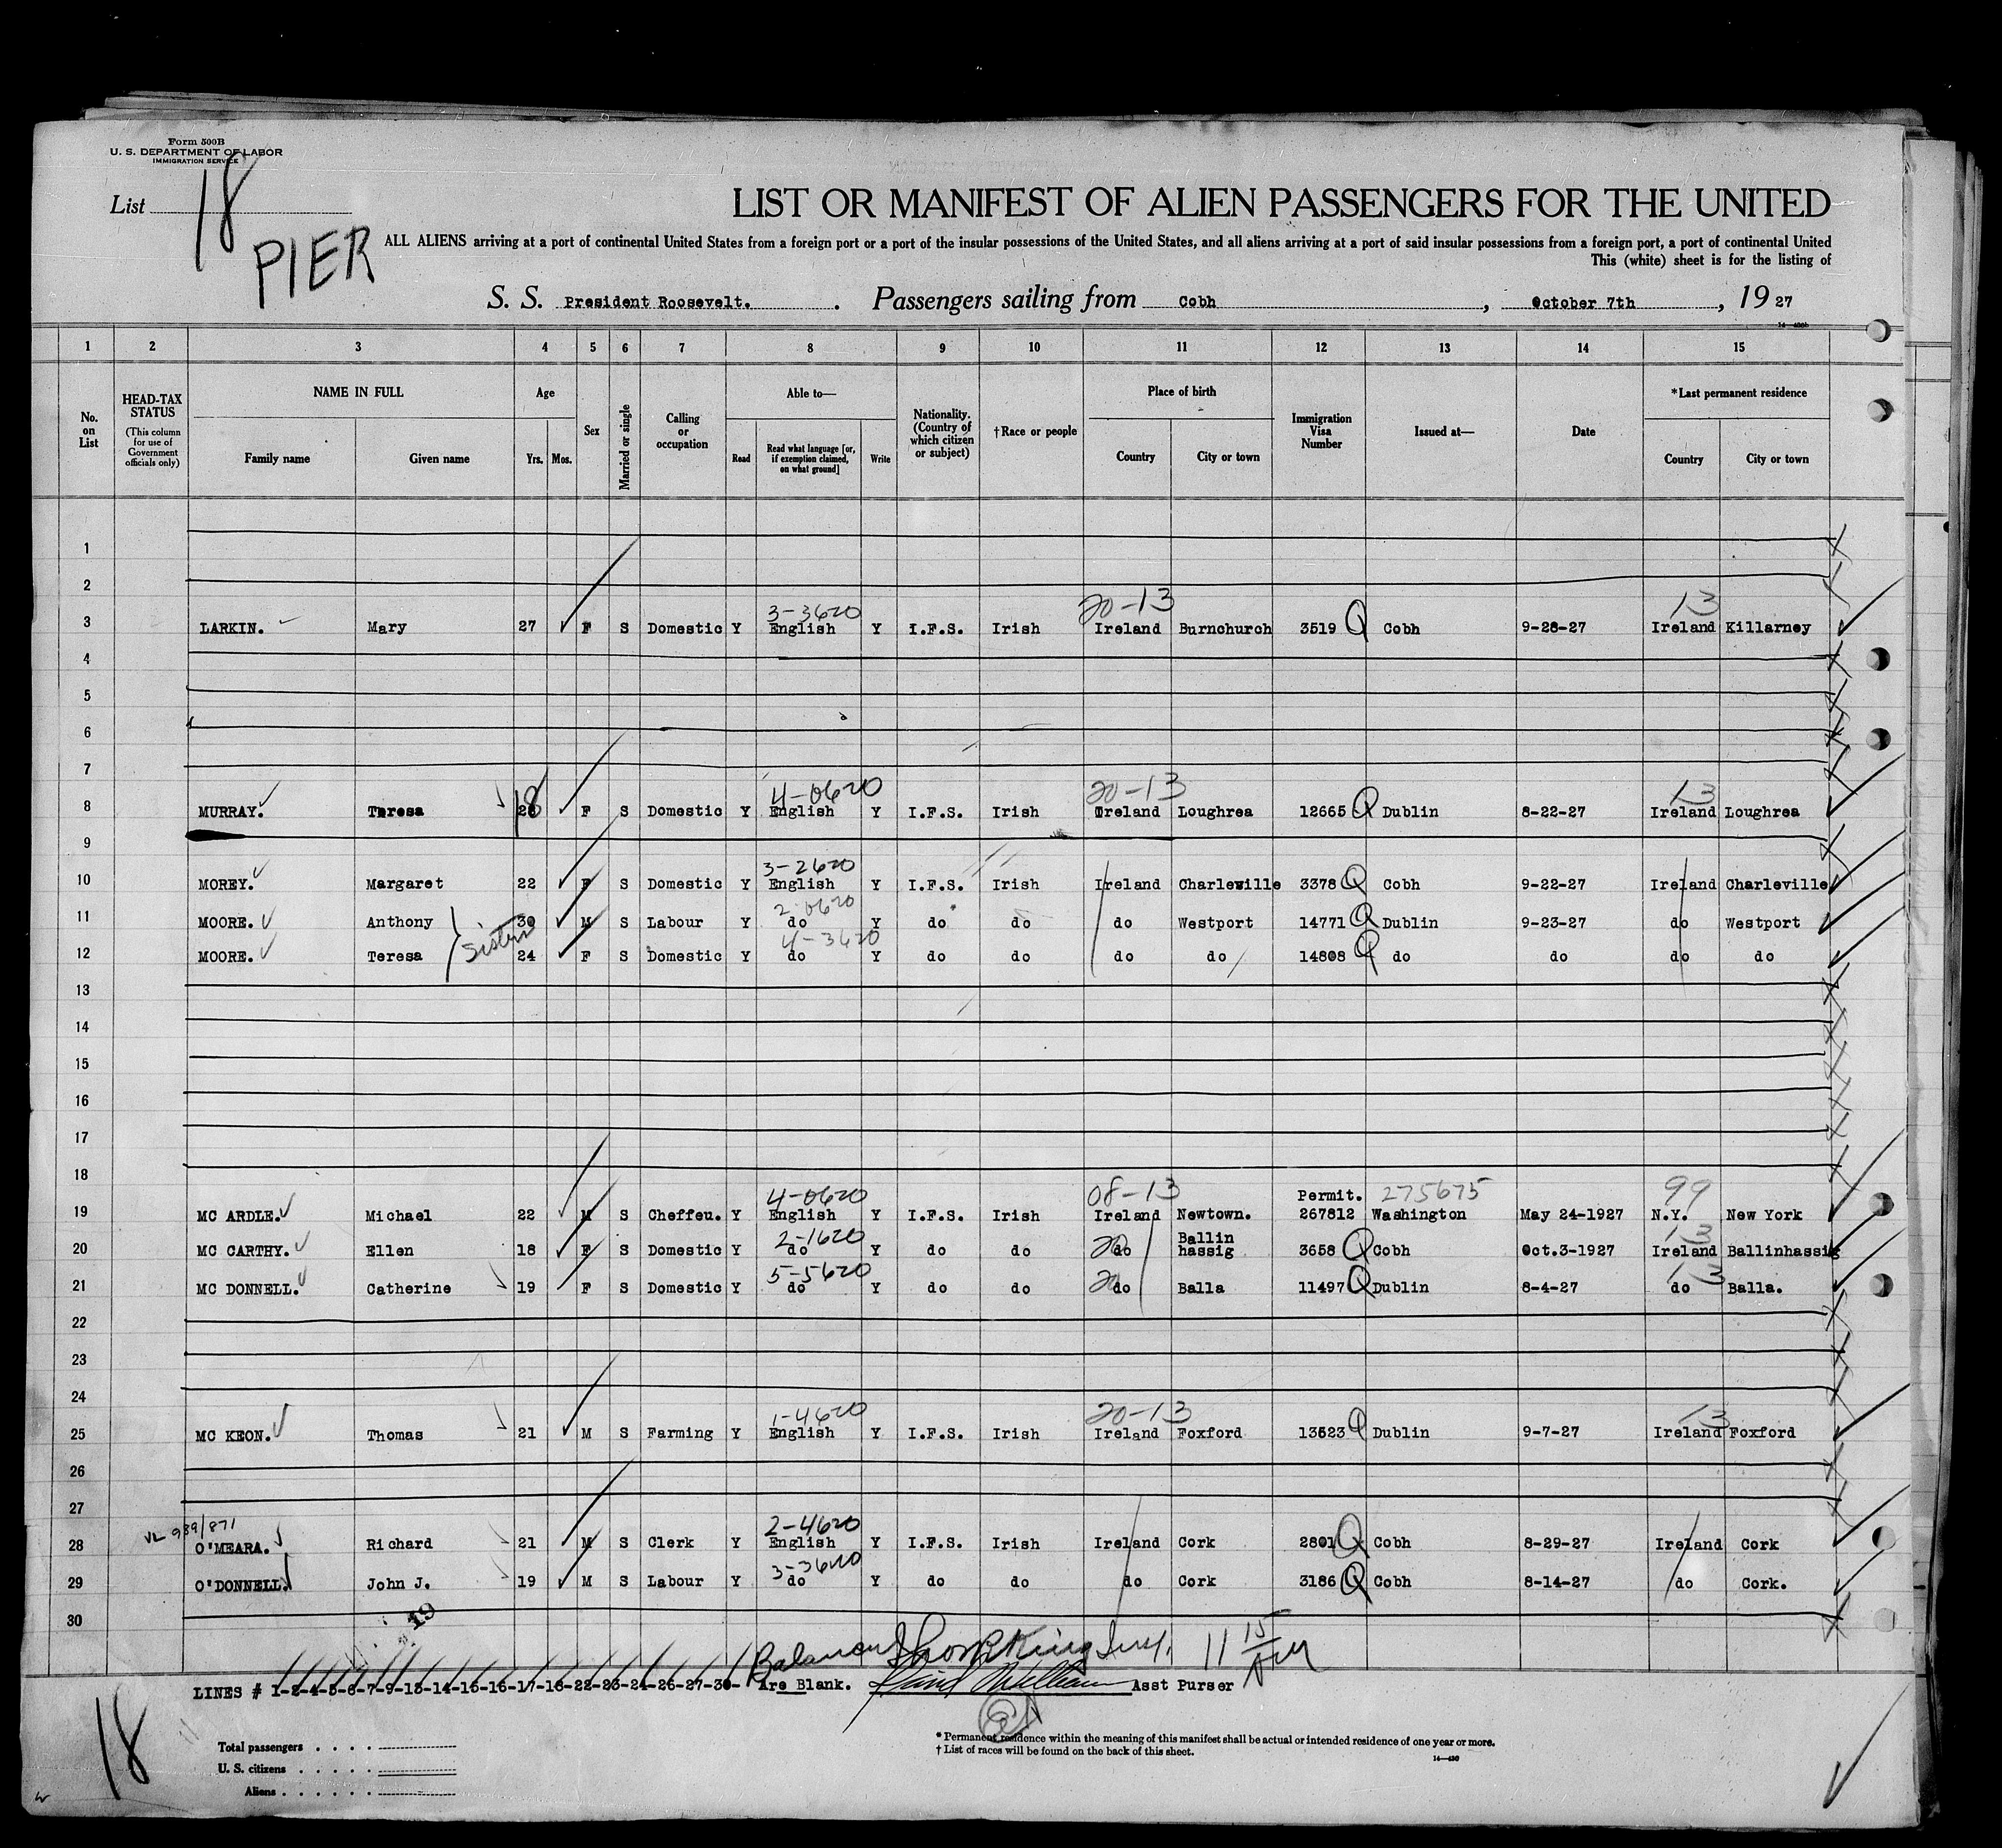 Form 500B
U. S. DEPARTMENT OF LABOR
IMMIGRATION SERVICE
List 18
PIER
LIST OR MANIFEST OF ALIEN PASSENGERS FOR THE UNITED
ALL ALIENS arriving at a port of continental United States from a foreign port or a port of the insular possessions of the United States, and all aliens arriving at a port of said insular possessions from a foreign port, a port of continental United
This (white) sheet is for the listing of
S. S. President Roosevelt. Passengers sailing from Cobh, October 7th, 19 27
1 2 3 4 5 6 7 8 9 10 11 12 13 14 15
No. on List
HEAD-TAX STATUS (This column for use of Government officials only)
NAME IN FULL Family name Given name
Age Yrs. Mos.
Sex
Married or single
Calling or occupation
Able to— Read Read what language [or, if exemption claimed, on what ground] Write
Nationality. (Country of which citizen or subject)
†Race or people
Place of birth Country City or town
Immigration Visa Number
Issued at—
Date
*Last permanent residence Country City or town
1
2
3-3620 20-13 13
3 LARKIN. Mary 27 F S Domestic Y English Y I.F.S. Irish Ireland Burnchurch 3519 Q Cobh 9-28-27 Ireland Killarney
4
5
6
7
4-0620 20-13 13
8 MURRAY. Teresa 18 F S Domestic Y English Y I.F.S. Irish Ireland Loughrea 12665 Q Dublin 8-22-27 Ireland Loughrea
9
3-2620
10 MOREY. Margaret 22 F S Domestic Y English Y I.F.S. Irish Ireland Charleville 3378 Q Cobh 9-22-27 Ireland Charleville
2-0620
11 MOORE. Anthony 30 M S Labour Y do Y do do do Westport 14771 Q Dublin 9-23-27 do Westport
Sister 4-3620
12 MOORE. Teresa 24 F S Domestic Y do Y do do do do 14808 Q do do do do
13
14
15
16
17
18
4-0620 08-13 Permit. 275675 99
19 MC ARDLE. Michael 22 M S Cheffeu. Y English Y I.F.S. Irish Ireland Newtown. 267812 Washington May 24-1927 N.Y. New York
2-1620 13
20 MC CARTHY. Ellen 18 F S Domestic Y do Y do do 20 do Ballin hassig 3658 Q Cobh Oct.3-1927 Ireland Ballinhassig
5-5620 13
21 MC DONNELL. Catherine 19 F S Domestic Y do Y do do 20 do Balla 11497 Q Dublin 8-4-27 do Balla.
22
23
24
1-4620 20-13 13
25 MC KEON. Thomas 21 M S Farming Y English Y I.F.S. Irish Ireland Foxford 13523 Q Dublin 9-7-27 Ireland Foxford
26
27
VL 939/871 2-4620
28 O'MEARA. Richard 21 M S Clerk Y English Y I.F.S. Irish Ireland Cork 2801 Q Cobh 8-29-27 Ireland Cork
3-3620
29 O'DONNELL. John J. 19 M S Labour Y do Y do do do Cork 3186 Q Cobh 8-14-27 do Cork.
30
19
King Insp. 11 15 AM
LINES # 1-2-4-5-6-7-9-13-14-15-16-17-18-22-23-24-26-27-30- Are Blank. Asst Purser
18
Total passengers
U. S. citizens
Aliens
* Permanent residence within the meaning of this manifest shall be actual or intended residence of one year or more.
† List of races will be found on the back of this sheet.